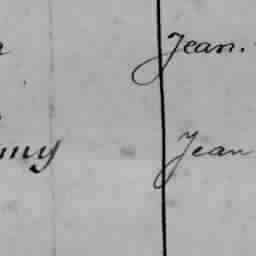 Jean.
my Jean